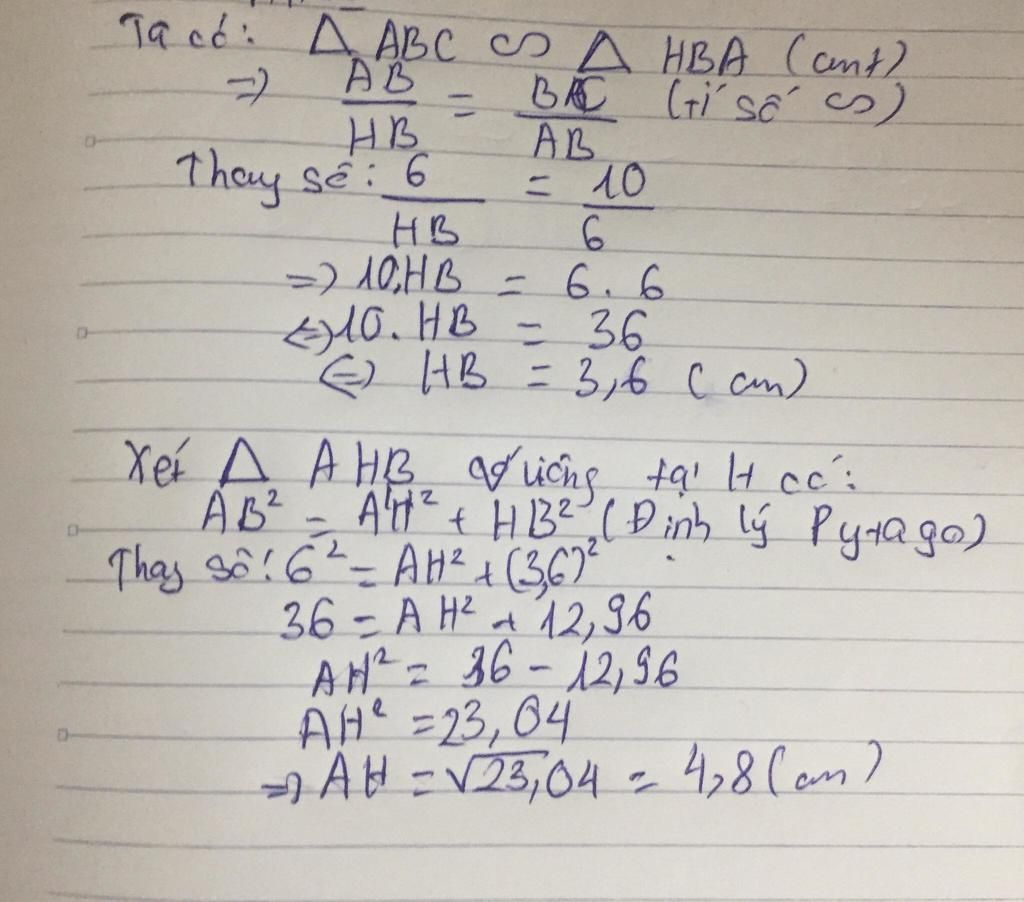 Ta có: Δ ABC ∽ Δ HBA (cmt)
=> AB/HB = BC/AB (tỉ số ∽)
Thay số: 6/HB = 10/6
=> 10.HB = 6.6
<=> 10.HB = 36
<=> HB = 3,6 (cm)
Xét Δ AHB vuông tại H có:
AB² = AH² + HB² (Định lý Pytago)
Thay số: 6² = AH² + (3,6)²
36 = AH² + 12,96
AH² = 36 - 12,96
AH² = 23,04
=> AH = √23,04 = 4,8 (cm)